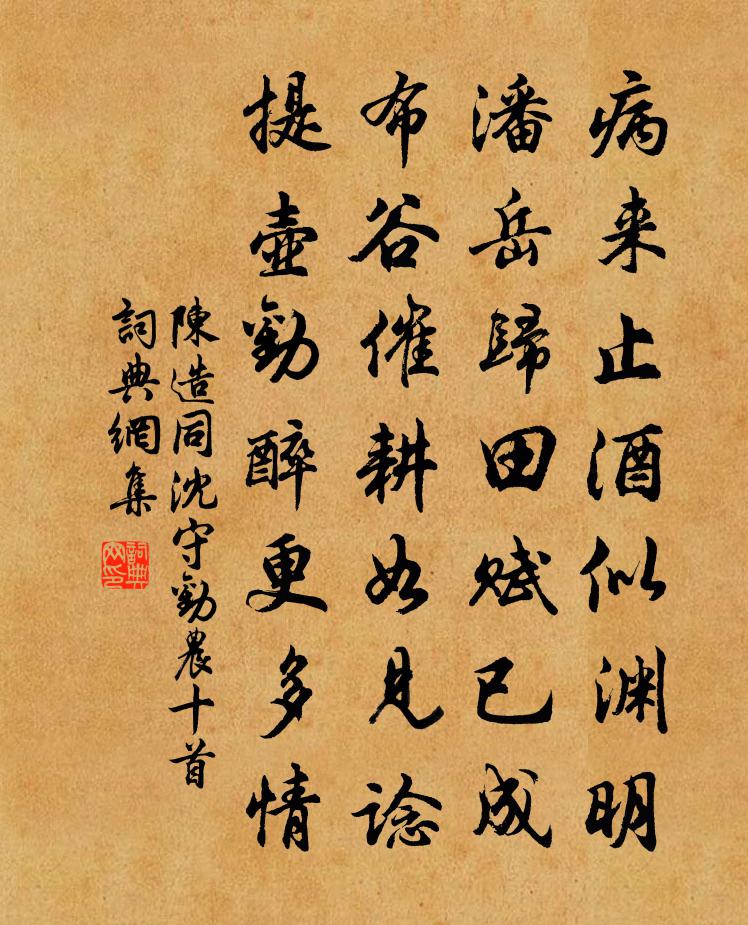 病来止酒似渊明
潘岳歸田赋已成
布谷催耕如見諗
提壺勸醉更多情
陳造同沈守勸農十首
詞典網集
詞典网印